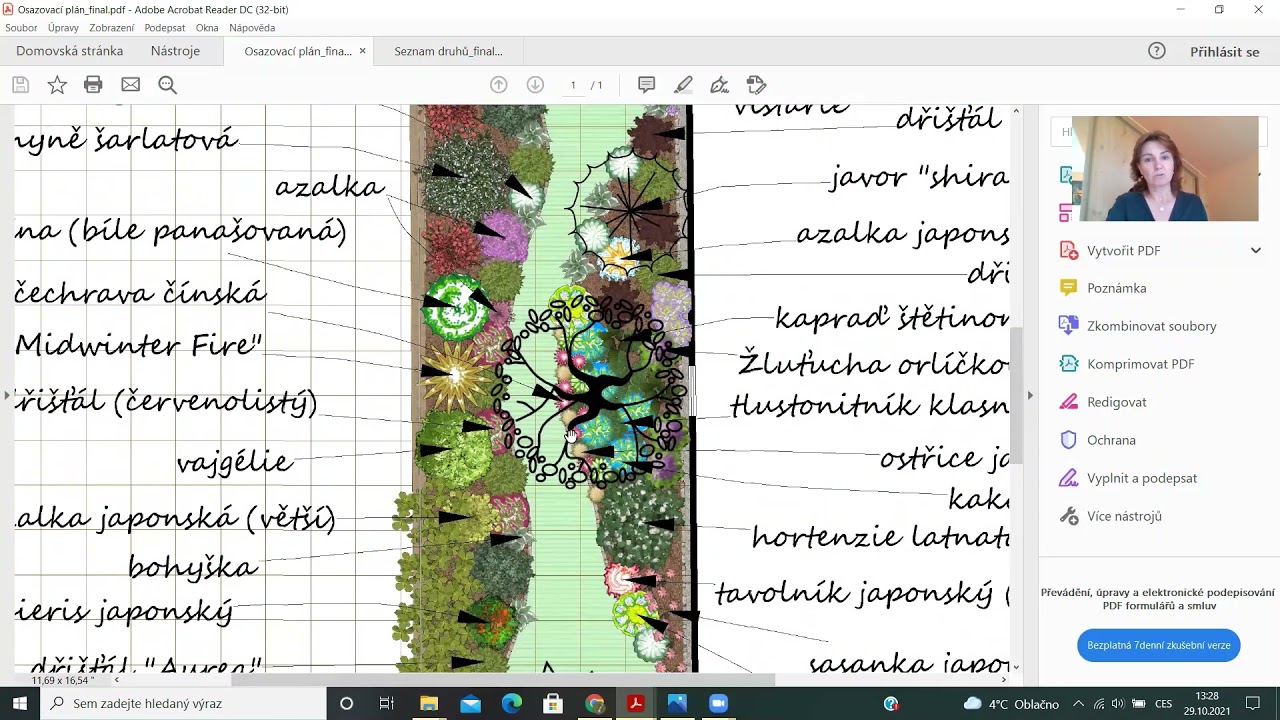 Osazovací plán_final.pdf - Adobe Acrobat Reader DC (32-bit)
Soubor Úpravy Zobrazení Podepsat Okna Nápověda
Domovská stránka Nástroje Osazovací plán_fina... × Seznam druhů_final... Přihlásit se
1 / 1
dřišťál
šarlatová
javor "shira
azalka
azalka japons
na (bíle panašovaná)
dři
čechrava čínská
kapraď štětinov
Midwinter Fire"
Žluťucha orlíčko
řišťál (červenolistý)
tlustonitník klasn
vajgélie
ostřice ja
kako
alka japonská (větší)
hortenzie latnat
bohyška
tavolník japonský (
ieris japonský
sasanka japo
dřišťál "Aurea"
11,69 x 16,54 "
Vytvořit PDF
Poznámka
Zkombinovat soubory
Komprimovat PDF
Redigovat
Ochrana
Vyplnit a podepsat
Více nástrojů
Převádění, úpravy a elektronické podepisování
PDF formulářů a smluv
Bezplatná 7denní zkušební verze
Sem zadejte hledaný výraz
4°C Oblačno
CES
13:28
29.10.2021